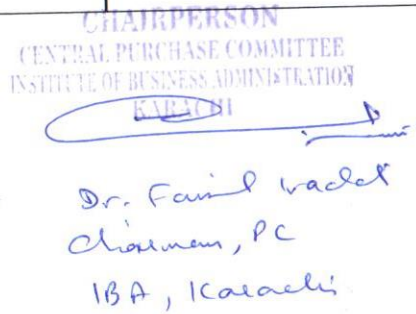 CHAIRPERSON
CENTRAL PURCHASE COMMITTEE
INSTITUTE OF BUSINESS ADMINISTRATION
KARACHI
Dr.
Chairman, PC
IBA, Karachi